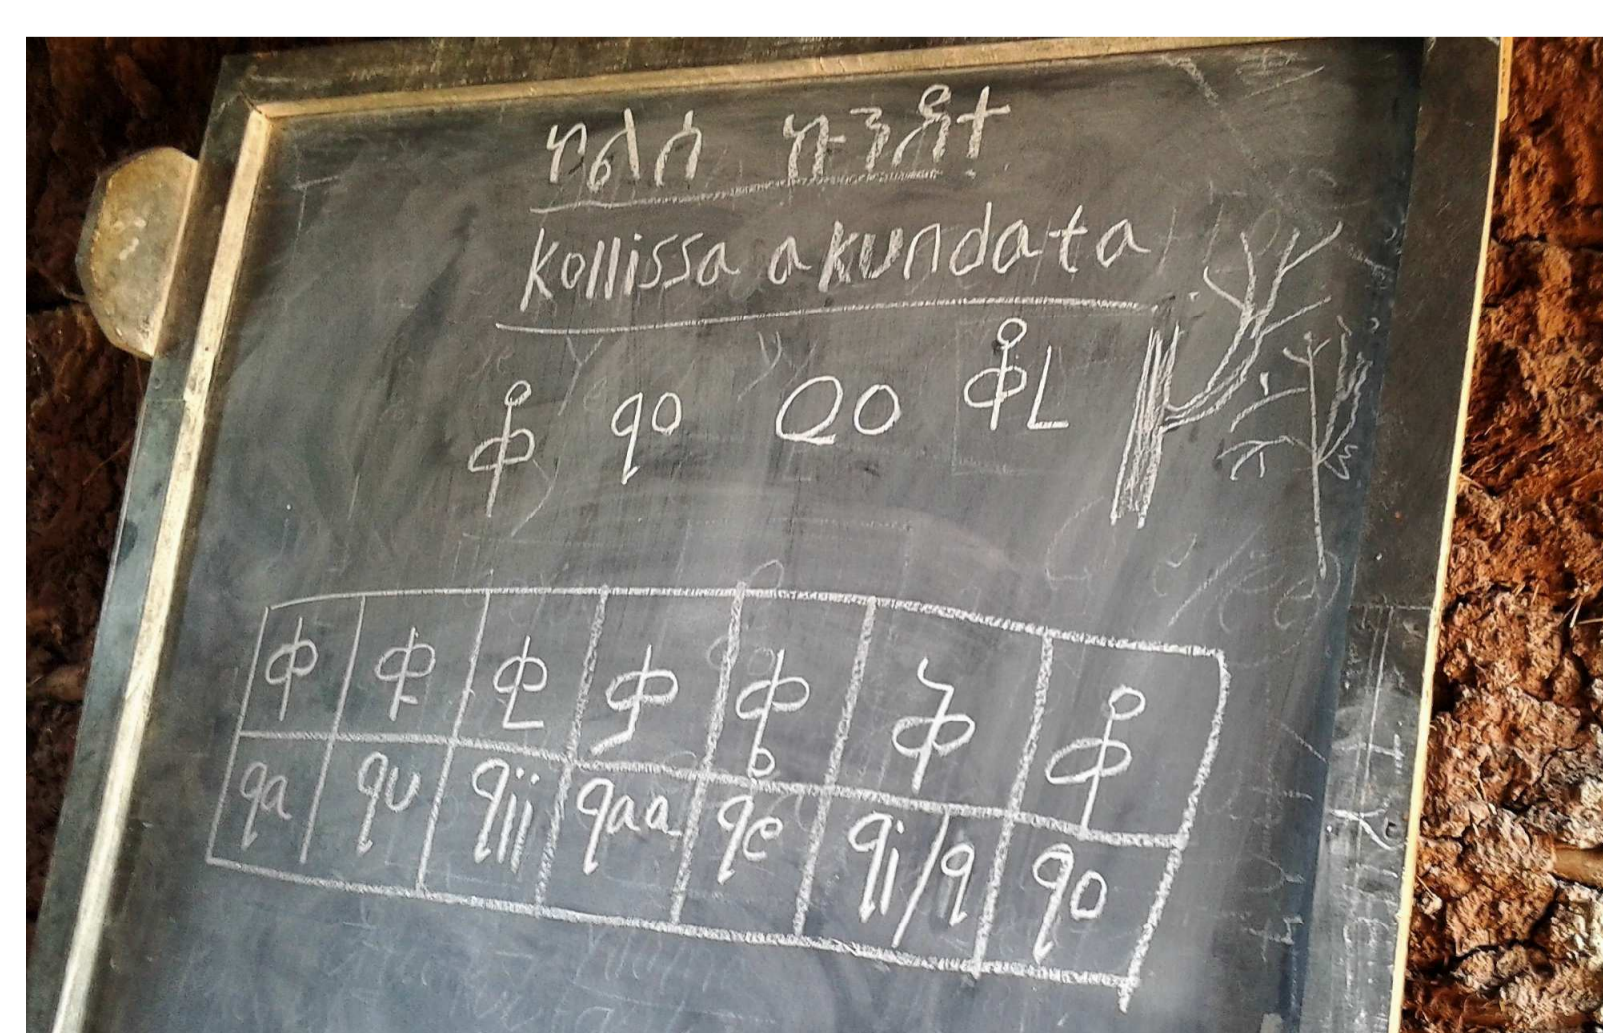 ኮልሰ ኩንዶተ
kollissa akundata
ቆ qo Qo ቆL
ቀ ቁ ቂ ቃ ቄ ቅ ቆ
qa qu qii qaa qe qi/q qo